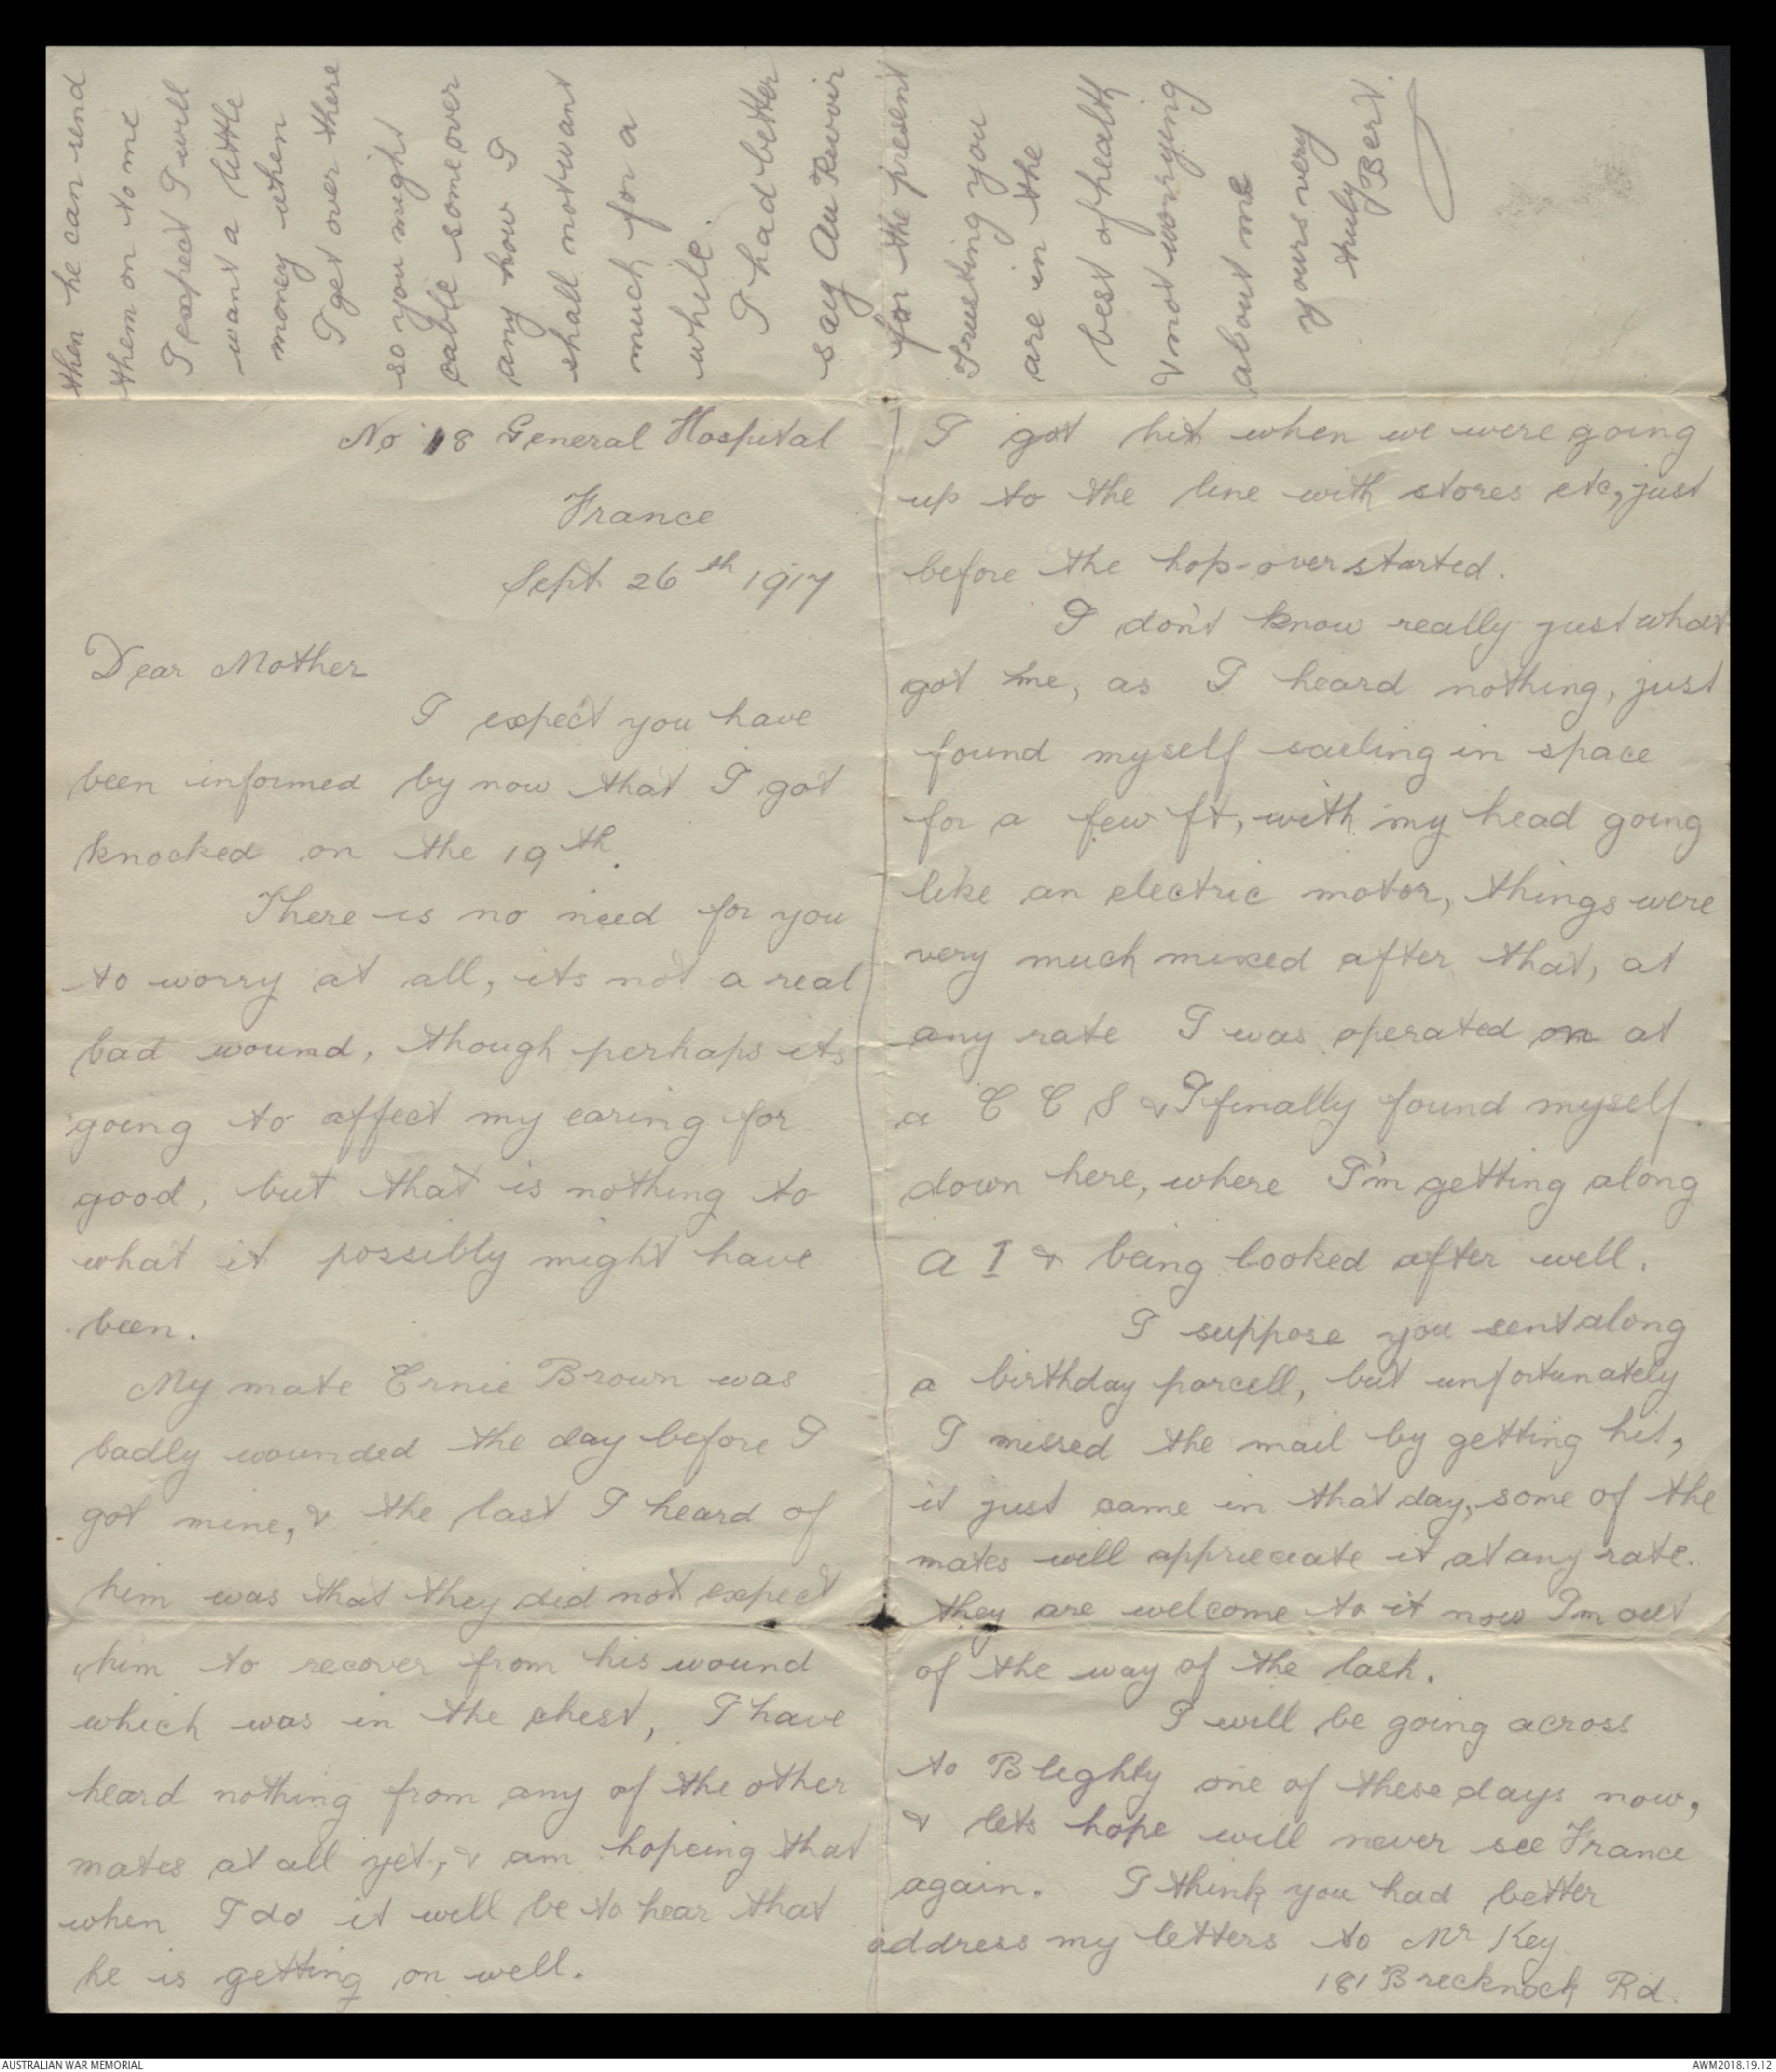 No 18 General Hospital
France
Sept 26th 1917
Dear Mother
I expect you have
been informed by now that I got
knocked on the 19th.
There is no need for you
to worry at all, its not a real
bad wound, though perhaps its
going to affect my earing for
good, but that is nothing to
what it possibly might have
been.
My mate Ernie Brown was
badly wounded the day before I
got mine, & the last I heard of
him was that they did not expect
him to recover from his wound
which was in the chest, I have
heard nothing from any of the other
mates at all yet, & am hopeing that
when I do it will be to hear that
he is getting on well.
I got hit when we were going
up to the line with stores etc, just
before the hop-over started.
I don't know really just what
got me, as I heard nothing, just
found myself sailing in space
for a few ft, with my head going
like an electric motor, things were
very much mixed after that, at
any rate I was operated on at
a C C S & I finally found myself
down here, where I'm getting along
A 1 & being looked after well.
I suppose you sent along
a birthday parcell, but unfortunately
I missed the mail by getting hit,
it just came in that day, some of the
mates will appriecate it at any rate.
they are welcome to it now Im out
of the way of the lash.
I will be going across
to Bleghty one of these days now,
& lets hope will never see France
again. I think you had better
address my letters to Mr Key
181 Brecknock Rd.
then he can send
them on to me
I expect I will
want a little
money when
I get over there
so you might
cable some over
any how I
shall not want
much for a
while.
I had better
say Au Revoir
for the present
Trusting you
are in the
best of health
& not worrying
about me
yours very
truly
Bert.
AUSTRALIAN WAR MEMORIAL
AWM2018.19.12